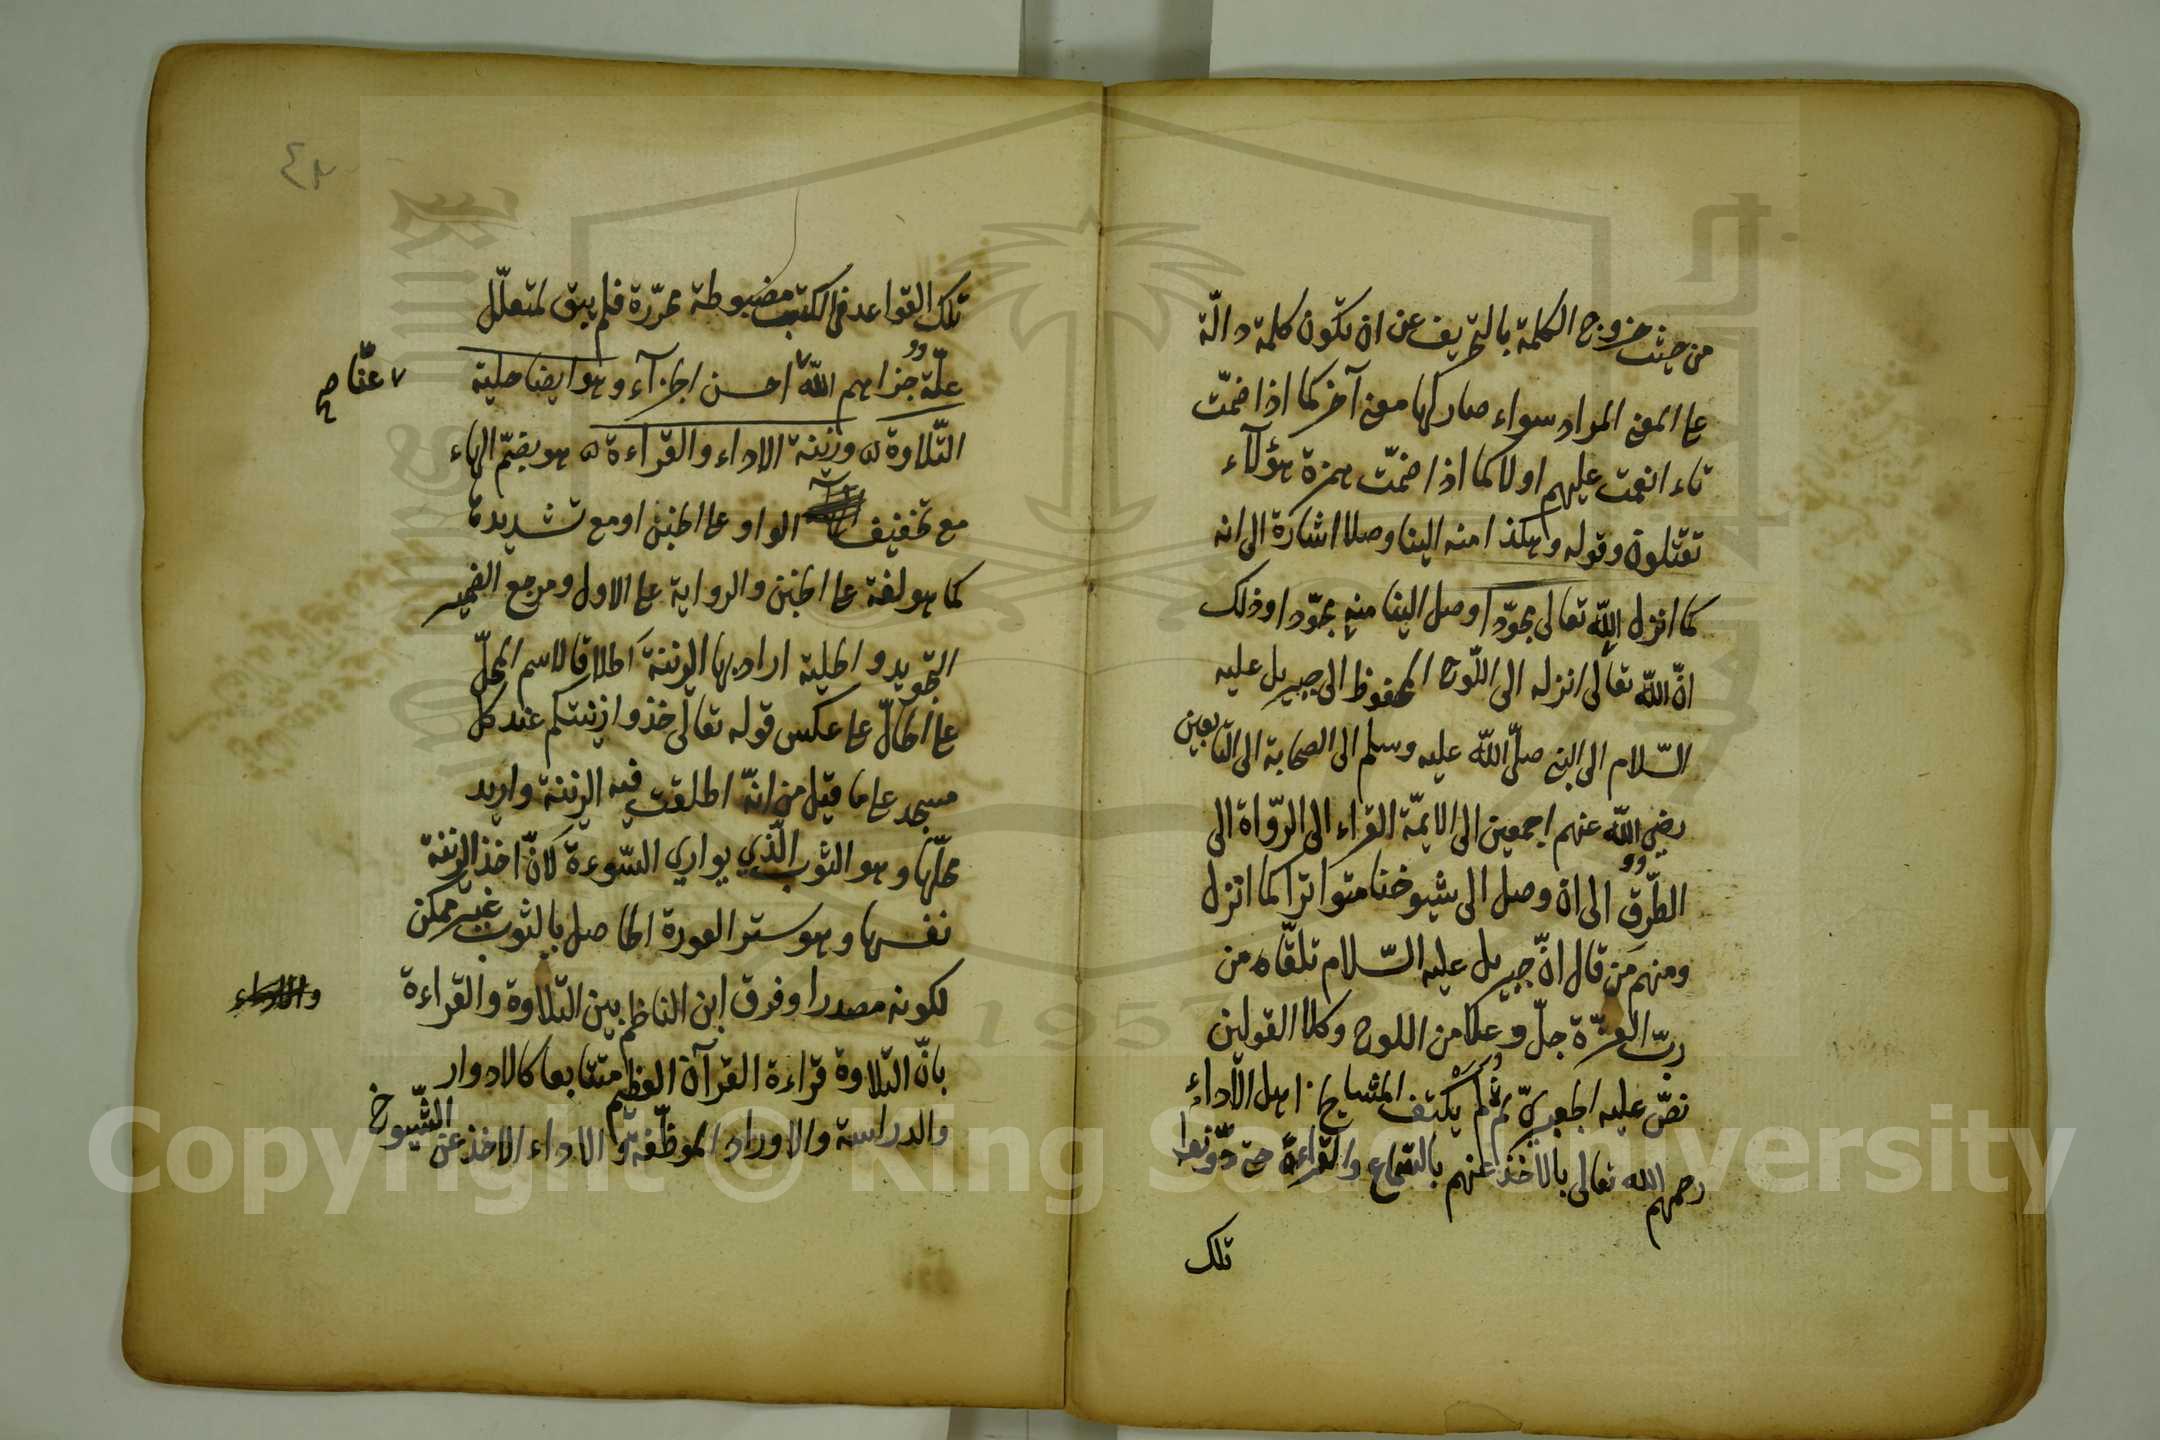 من حيث خروج الكلمة بالتحريف عن ان تكون كلمة دالّة
على المعنى المراد سواء صار لها معنى آخر كما اذا ضمّت
تاء انعمت عليهم اولا كما اذا ضمّت همزة هؤلآء
تقتلون وقوله وهكذا منه الينا وصلا اشارة الى انه
كما انزل اللّه تعالى مجوّدا وصل الينا منه مجوّدا وذلك
انّ اللّه تعالى انزله الى اللّوح المحفوظ الى جبريل عليه
السّلام الى النبي صلّى اللّه عليه وسلم الى الصحابة الى التابعين
رضي اللّه عنهم اجمعين الى الايمّة القراء الى الرّواة الى
الطّرق الى ان وصل الى شيوخنا متواترا كما انزل
ومنهم من قال انّ جبريل عليه السّلام تلقّاه من
ربّ العزّة جلّ وعلا من اللوح وكلا القولين
نصّ عليه الجعبريّ ثم لم يكتف المشايخ اهل الاداء
رحمهم الله تعالى بالاخذ عنهم بالسّماع والقراءة حتى دوّنوا
تلك
تلك القواعد في الكتب مضبوطة محرّرة فلم يبق لمتعلّل
علّة جزاهم اللّه احسن الجزآء وهو ايضا حلية
عنّا صح
التّلاوة وزينة الاداء والقراءة هو بضمّ الهاء
مع تخفيف الواو على الجنس او مع تشديدها
كما هو لغة على الجنس والرواية على الاول ومرجع الضمير
التجويد والحلية اراد بها الزينة اطلاقا لاسم المحلّ
على الحالّ على عكس قوله تعالى خذوا زينتكم عند كل
مسجد على ما قيل من انّه اطلقت فيه الزينة واريد
محلّها وهو الثوب الّذي يواري السّوءة لانّ اخذ الزينة
نفسها وهو ستر العورة الحاصل بالثوب غير ممكن
لكونه مصدرا وفرق ابن الناظم بين التلاوة والقراءة
بانّ التلاوة قراءة القرآن العظيم متتابعا كالادوار
والدراسة والاوراد الموظّفة والاداء الاخذ عن الشّيوخ
Copyright © King Saud University
1957